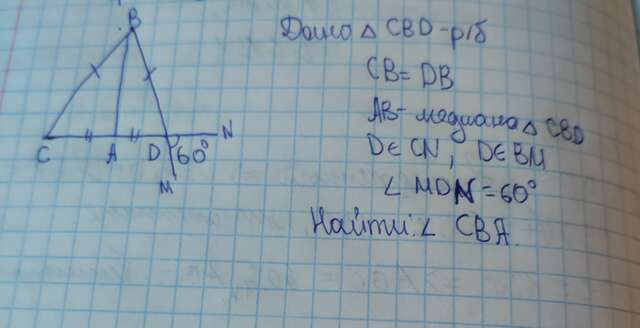 B
C A D 60° N
M
Дано △ CBD - р/б
CB = DB
AB - медиана △ CBD
D∈CN, D∈BM
∠ MDN = 60°
Найти: ∠ CBA.